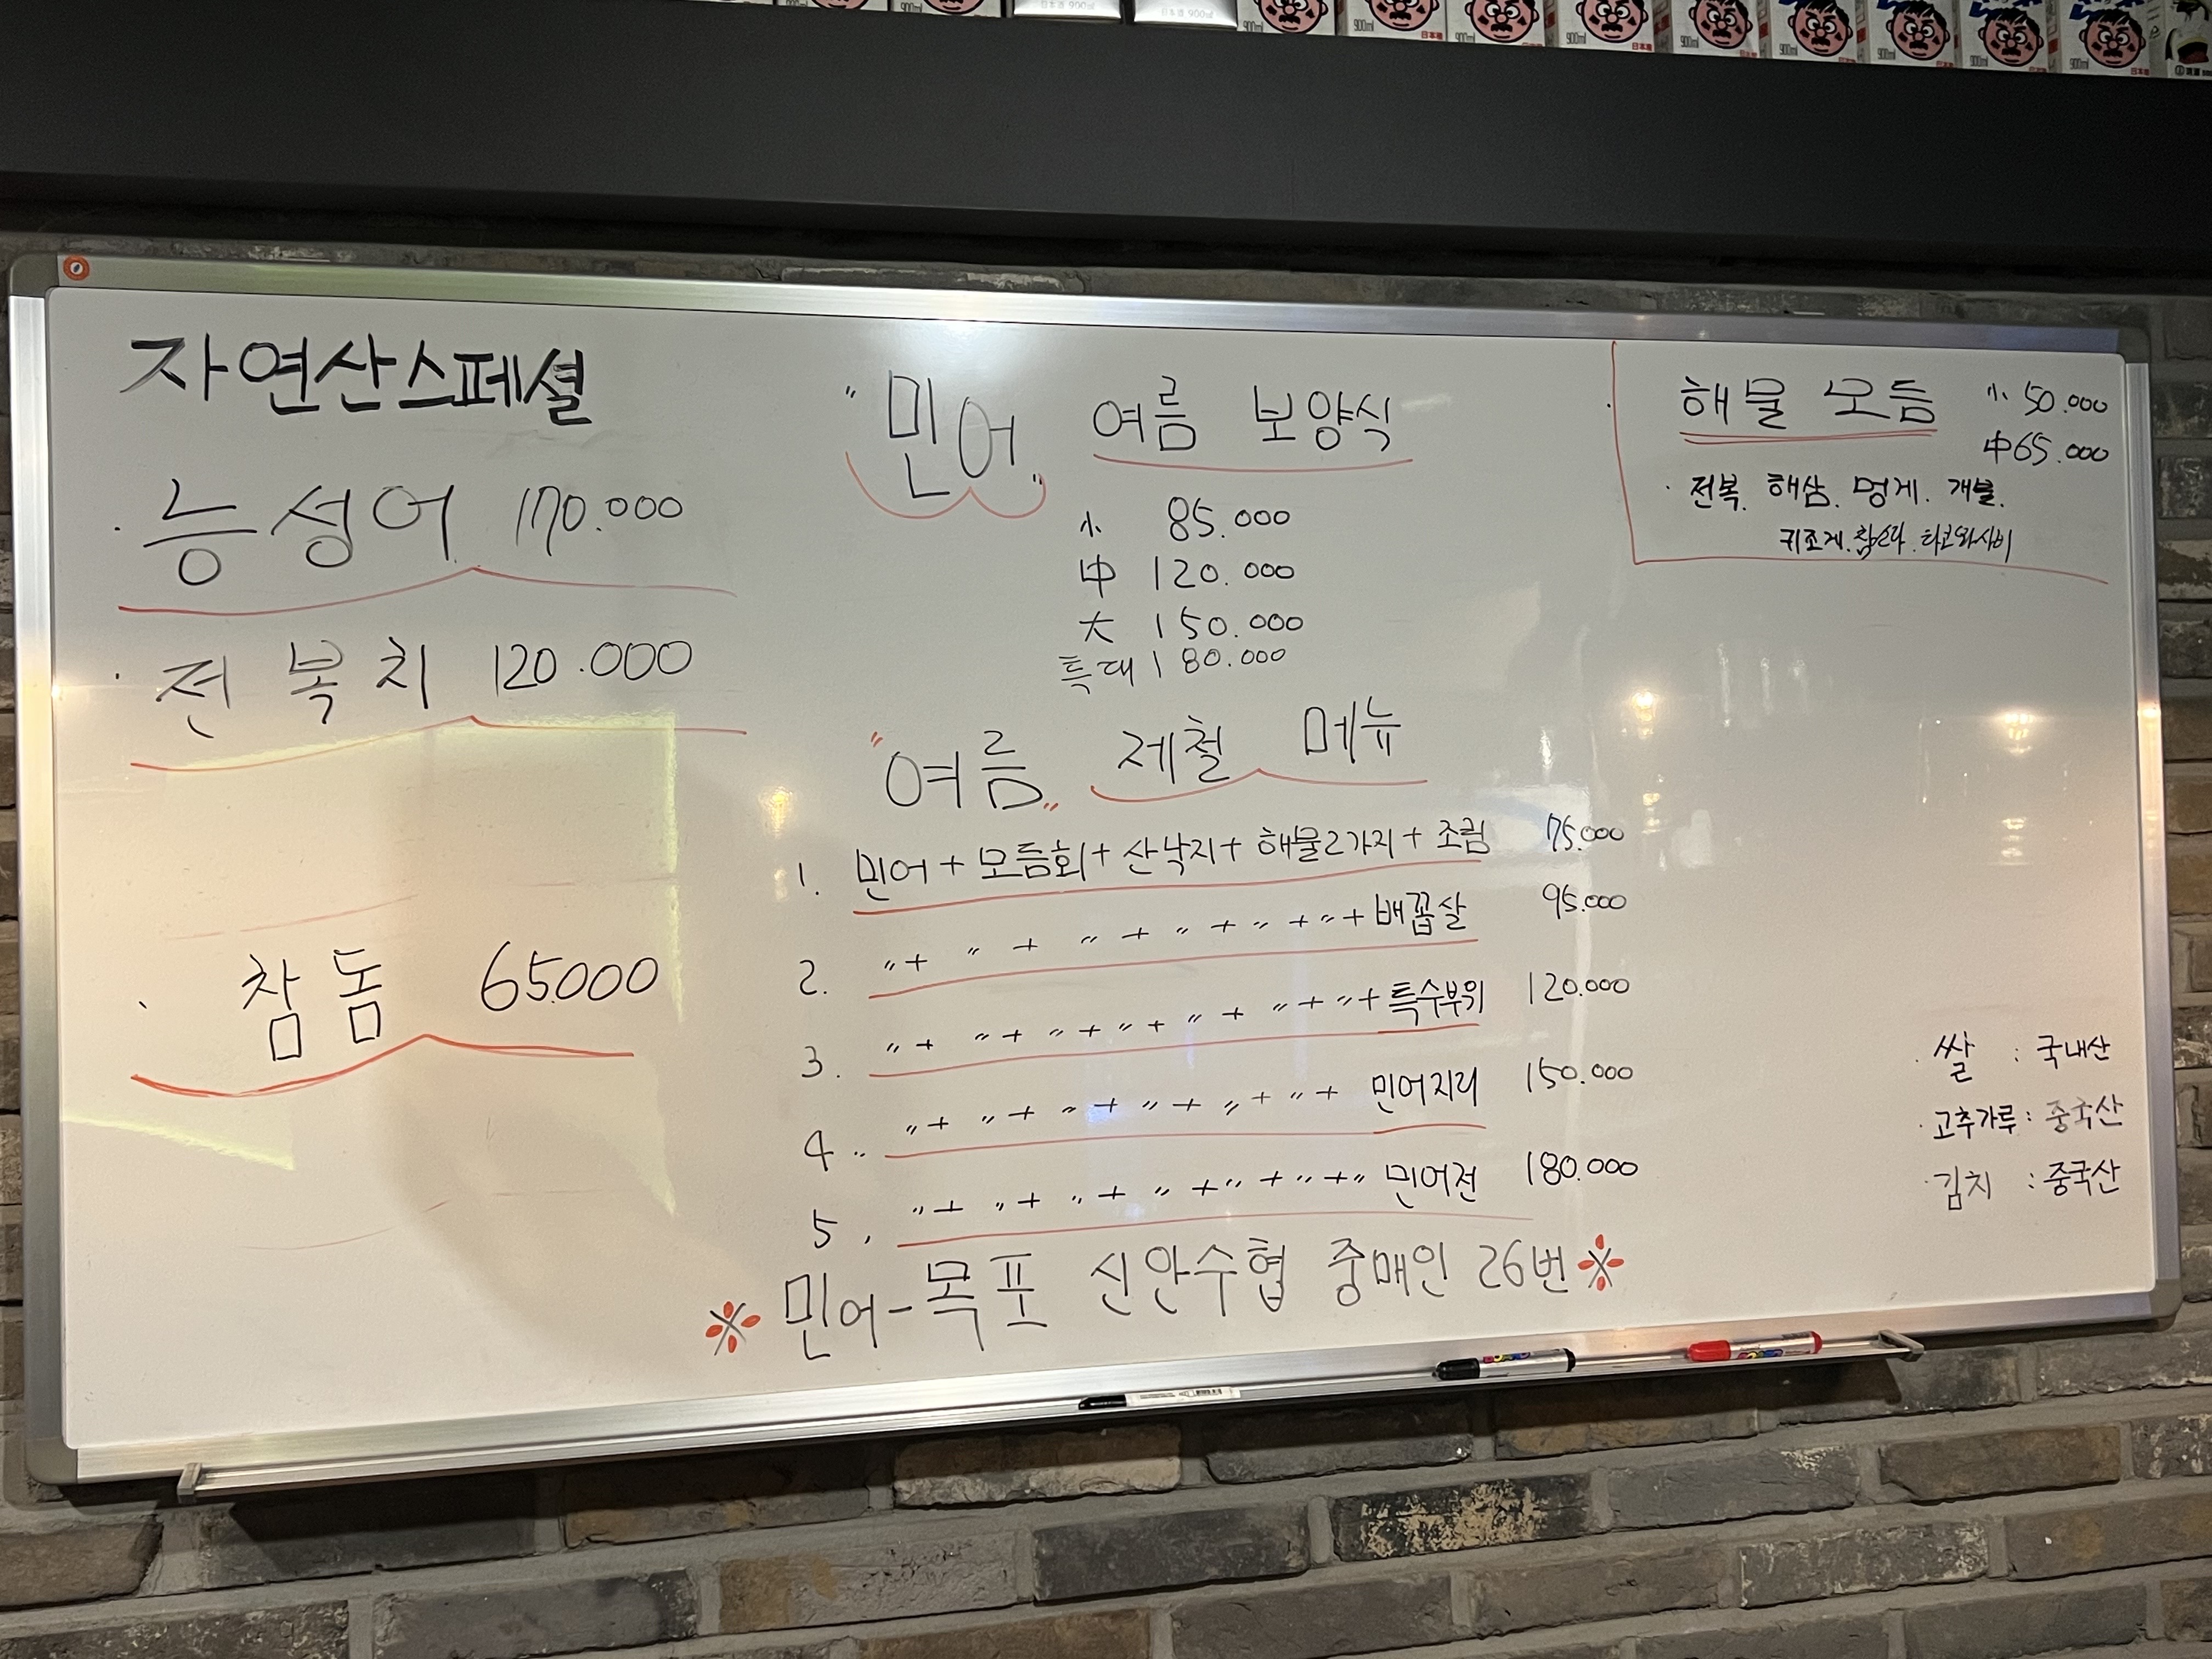 자연산스페셜
· 능성어 170.000
· 전복치 120.000
· 참돔 65.000
"민어" 여름 보양식
小 85.000
中 120.000
大 150.000
특대 180.000
"여름" 제철 메뉴
1. 민어 + 모듬회 + 산낙지 + 해물2가지 + 조림 75.000
2. 〃 + 〃 + 〃 + 〃 + 〃 + 배꼽살 95.000
3. 〃 + 〃 + 〃 + 〃 + 〃 + 〃 + 〃 + 특수부위 120.000
4. 〃 + 〃 + 〃 + 〃 + 〃 + 〃 + 민어지리 150.000
5. 〃 + 〃 + 〃 + 〃 + 〃 + 〃 + 〃 민어전 180.000
※ 민어 - 목포 신안수협 중매인 26번 ※
해물 모듬 小 50.000
中 65.000
· 전복. 해삼. 멍게. 개불.
키조개. 참소라. 타코와사비
· 쌀 : 국내산
· 고추가루 : 중국산
· 김치 : 중국산
900ml
日本産